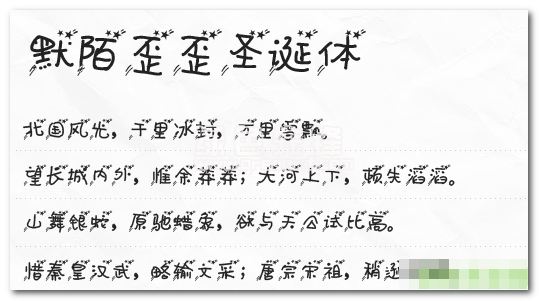 默陌歪歪圣诞体
北国风光，千里冰封，万里雪飘。
望长城内外，惟余莽莽；大河上下，顿失滔滔。
山舞银蛇，原驰蜡象，欲与天公试比高。
惜秦皇汉武，略输文采；唐宗宋祖，稍逊